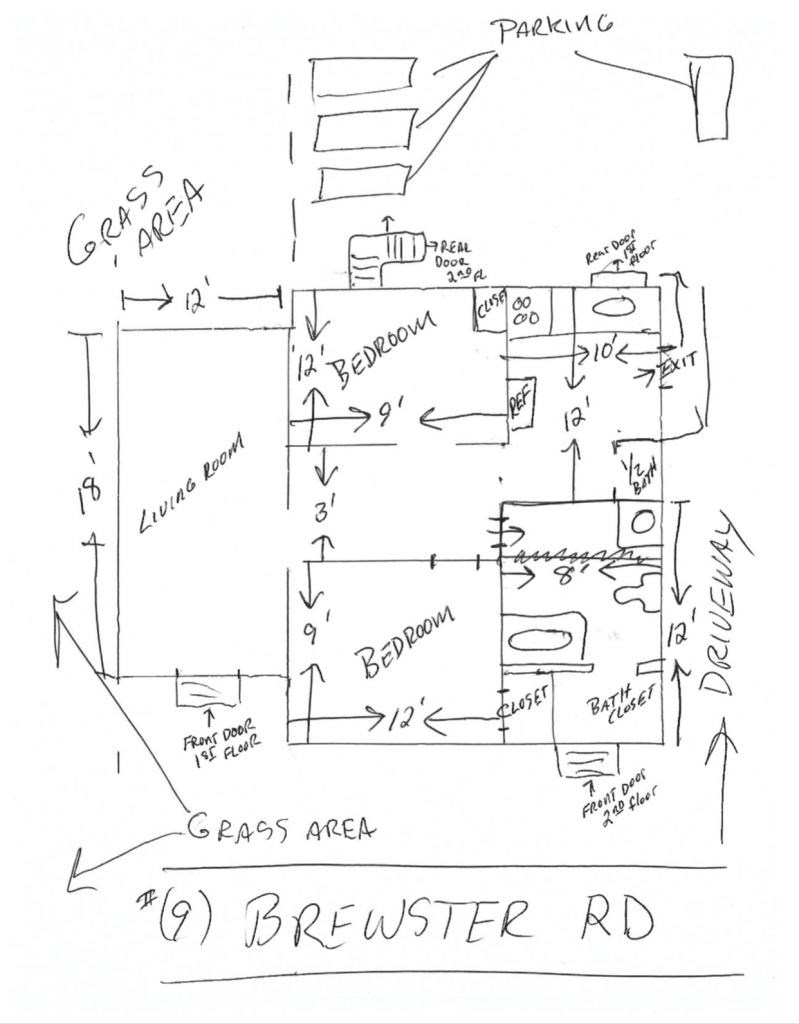 PARKING
GRASS
AREA
REAR
DOOR
2ND FL.
Rear DOOR
1ST
floor
12'
CLOSET
12'
BEDROOM
10'
EXIT
9'
REF
12'
18'
LIVING ROOM
3'
1/2
BATH
8'
9'
BEDROOM
12'
DRIVEWAY
12'
CLOSET
BATH
CLOSET
FRONT DOOR
1ST FLOOR
FRONT DOOR
2ND floor
GRASS AREA
#(9) BREWSTER RD